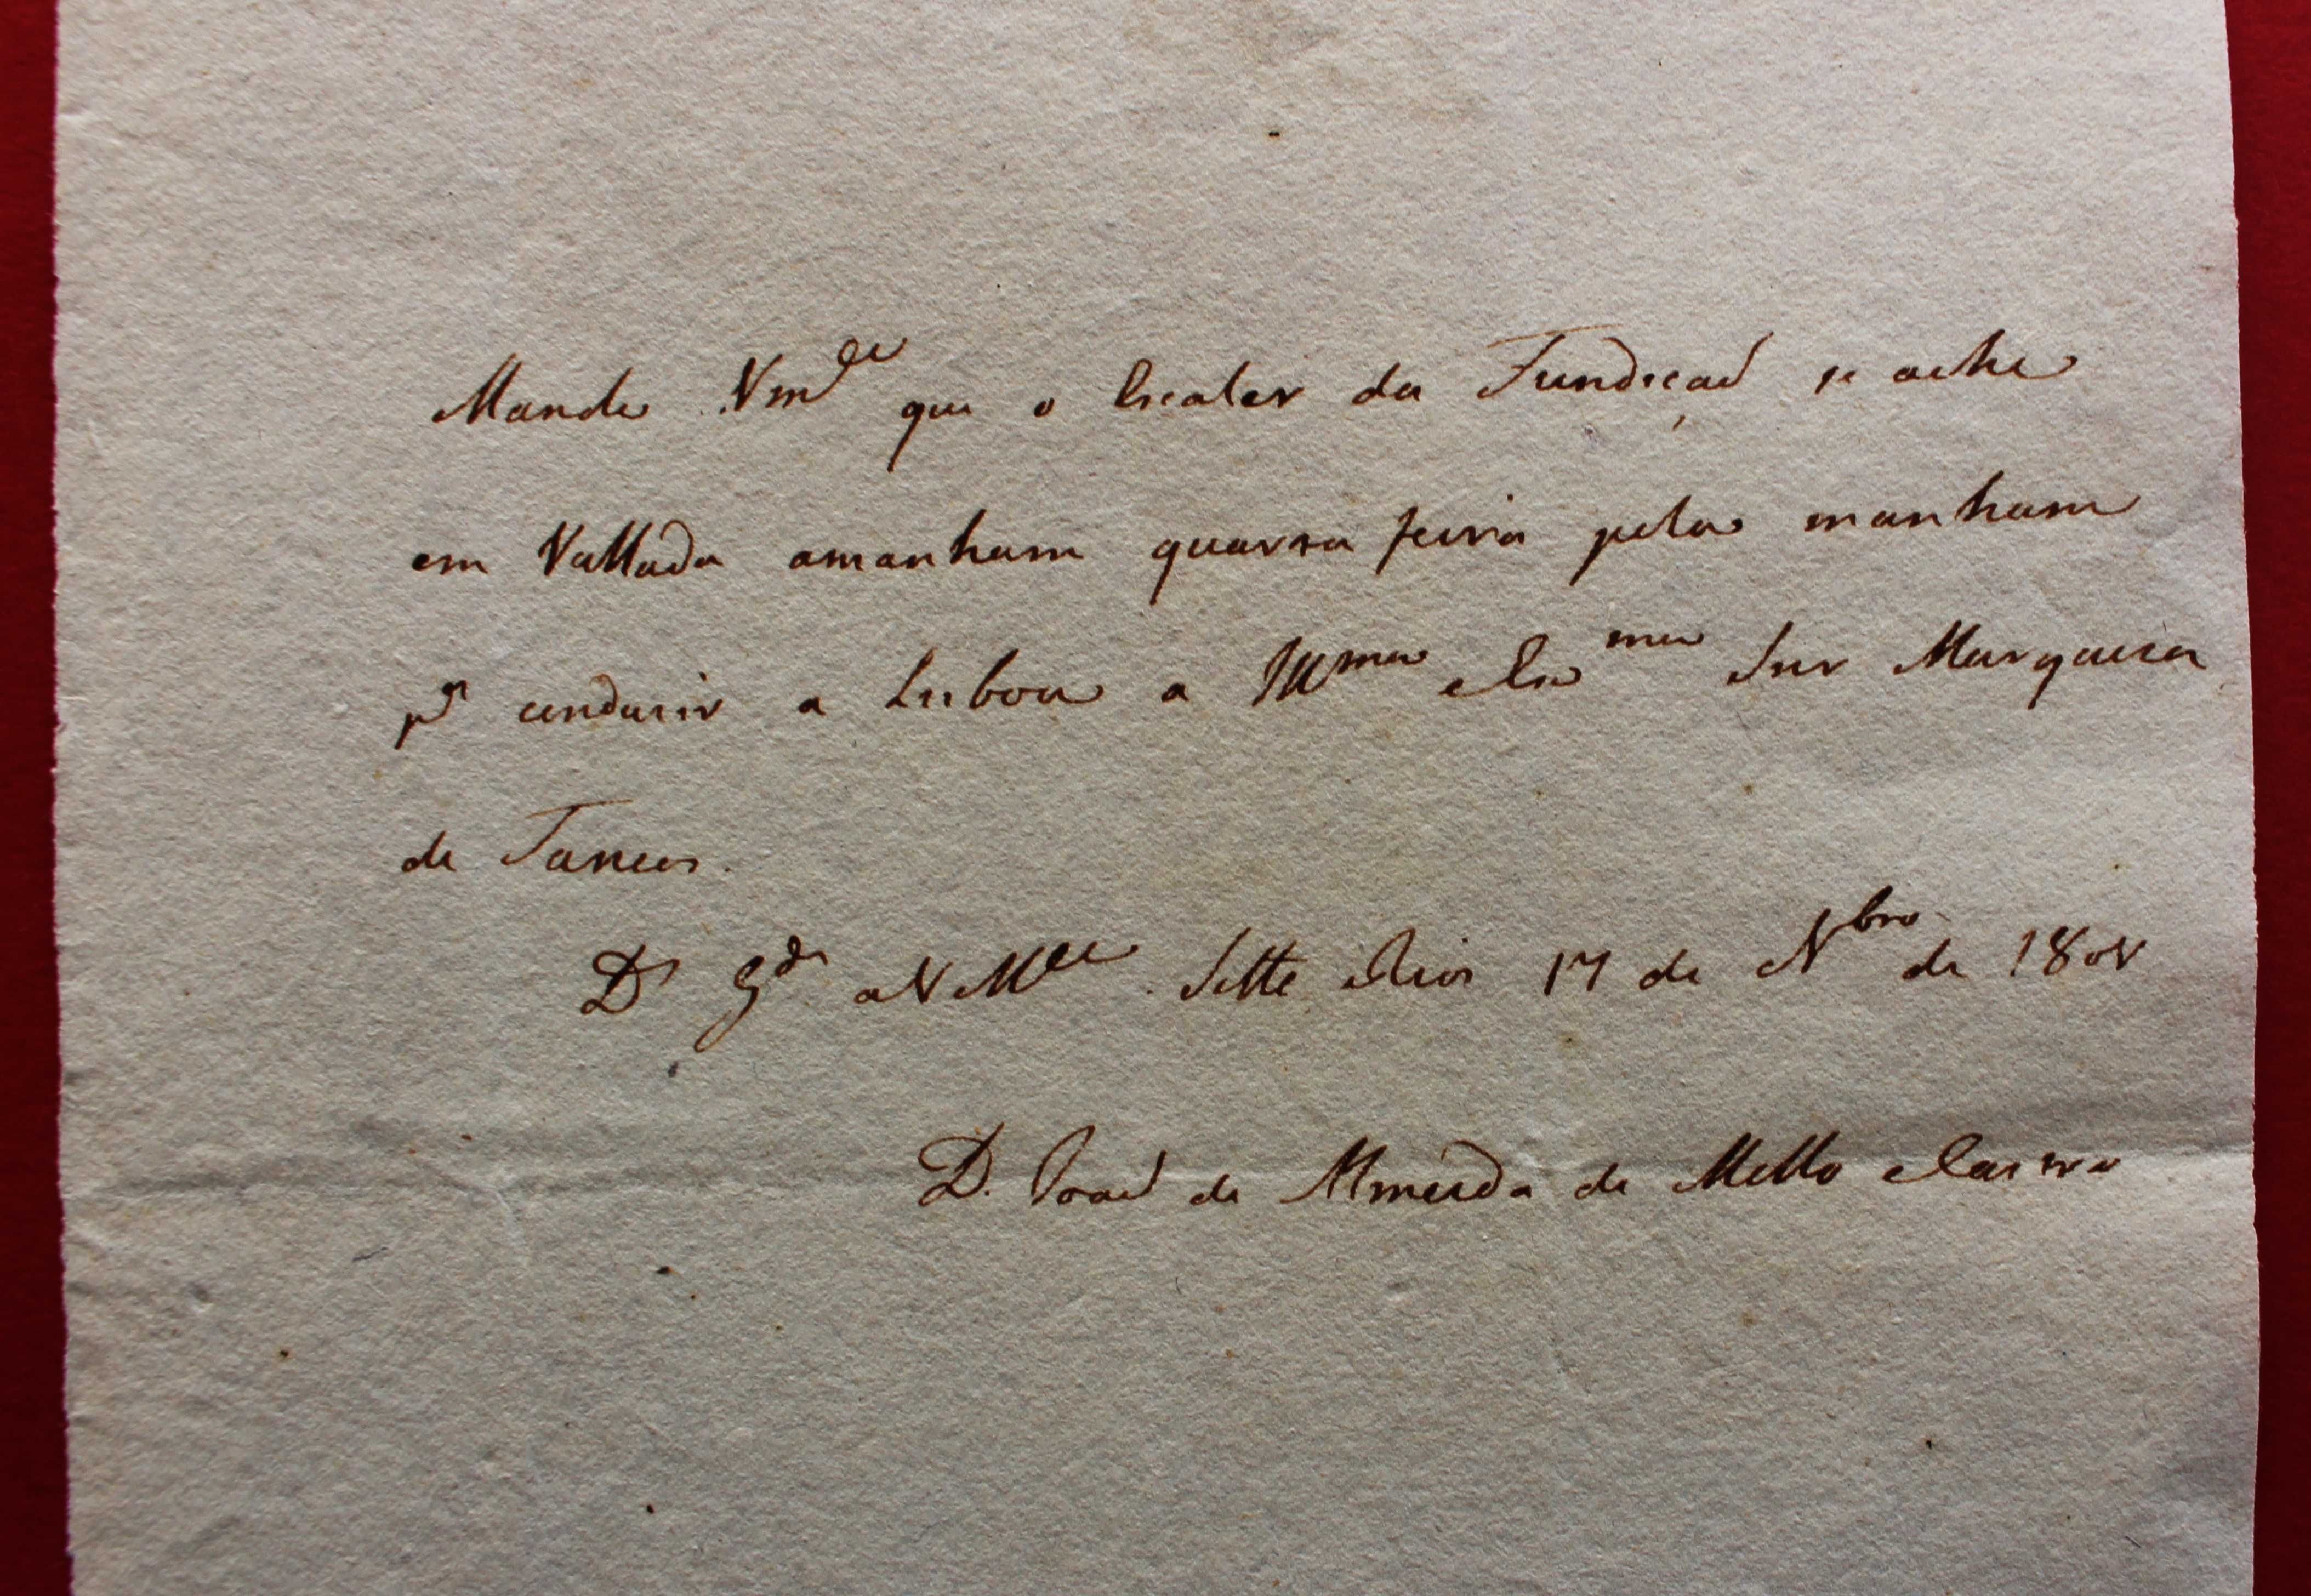 Mande Vm^ce que o Escaler da Fundiçaõ se ache
em Vallada amanham quarta feira pela manham
p^a condusir a Lisboa a Ill^ma e Ex^ma Snr Marquesa
de Tancos.
D^s g^de a V M^ce Sette Rios 17 de N^bro de 180
D. Joaõ de Almeida de Mello e Castro